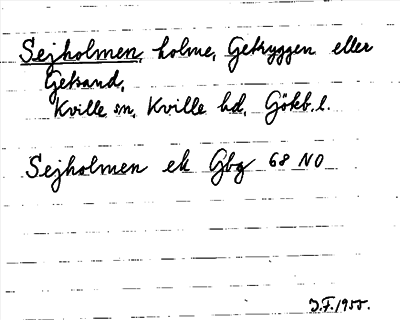 Sejholmen, holme, Getryggen eller
Getsand,
Kville sn, Kville hd, Gökb. l.
Sejholmen ek Gbg 68 NO
J.F. 1955.